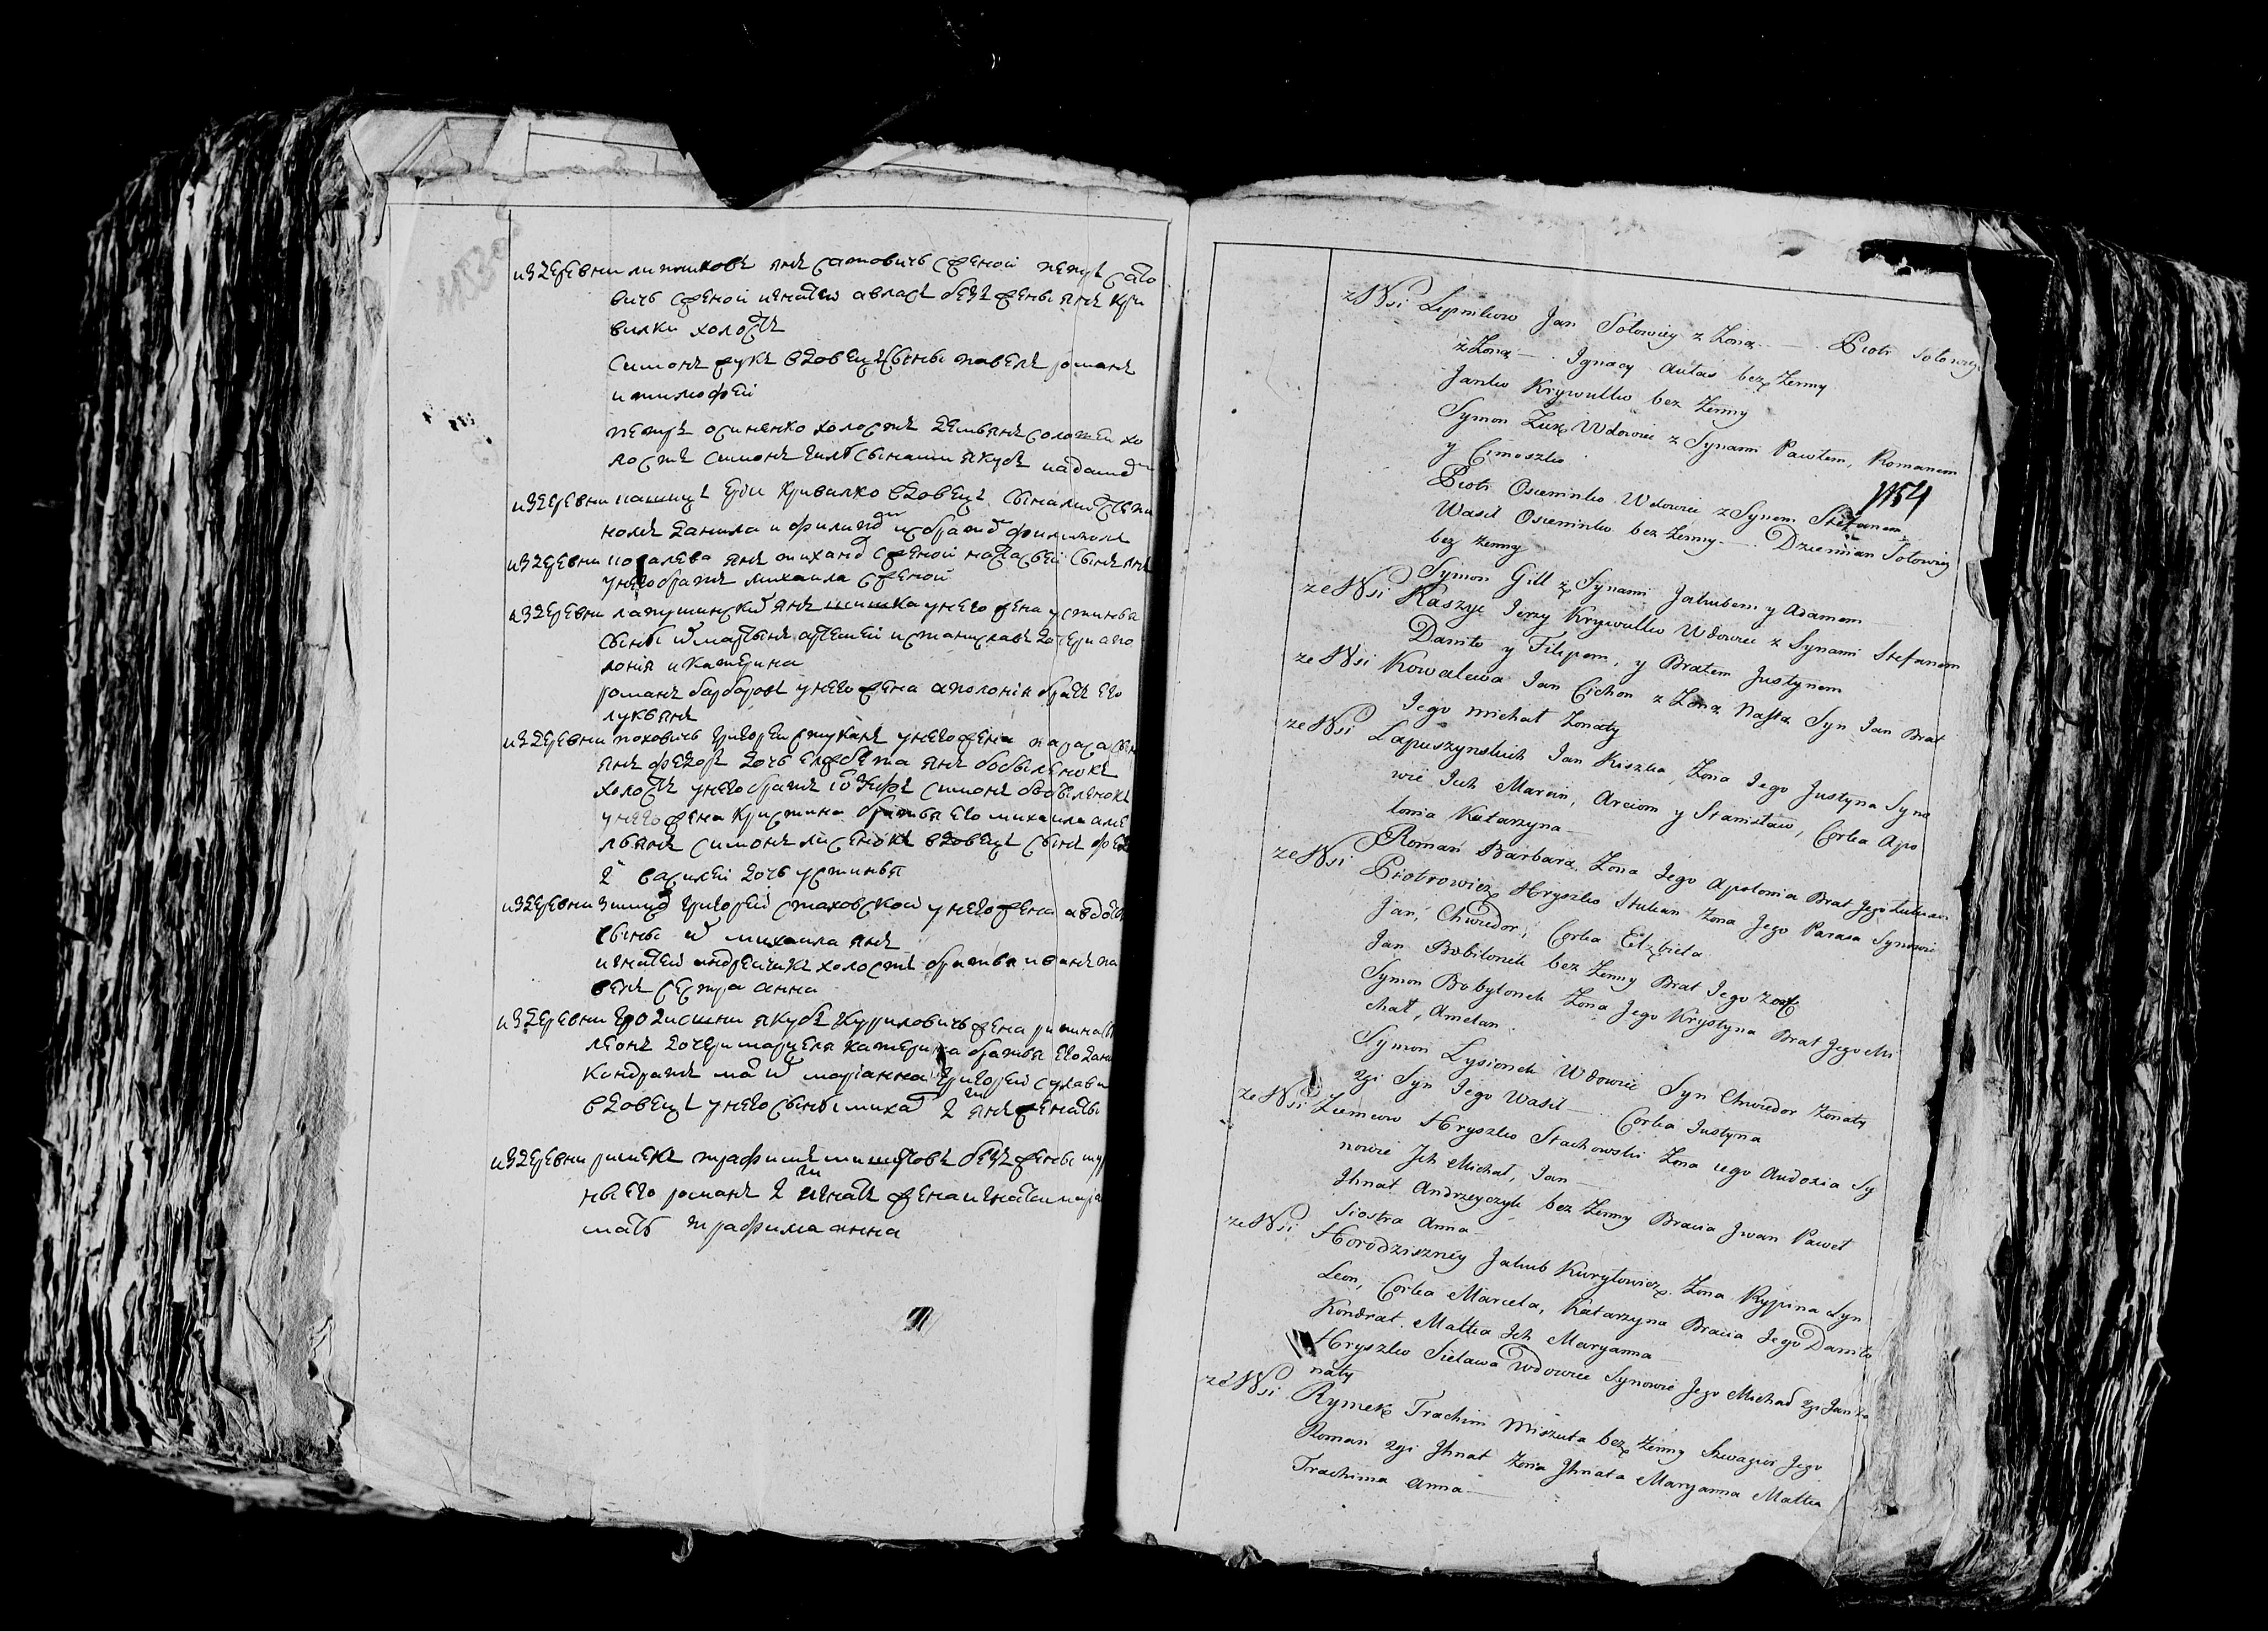 изъ деревни липниковъ янъ сатовичъ сженой петръ сато
вичъ сженой игнатей авласъ безъ жены янъ кри
вилки холостъ
симонъ жукъ вдовецъ сыны павелъ романъ
и тимофей
петръ осиненко холостъ демьянъ соловей хо
лостъ симонъ гилъ сынами якубъ и адамъ
изъ деревни кашицъ ери кривалко вдовецъ
данила и филипъ и братъ
изъ деревни ковалева янъ тихонъ сженой настасьей сынъ янъ
унего братъ михаила сженой
изъ деревни лапушинскихъ янъ шишка унего жена устинья
сыны ихъ мартынъ артемей и станиславъ дочери апо
лонія и катерина
романъ барбаровъ унего жена аполонія братъ его
лукьянъ
изъ деревни григорей стуканъ унего жена параса сын
янъ федоръ дочь елжбета янъ бобыленокъ
холостъ унего братъ іозефъ симонъ бобыленокъ
унего жена кристина братья его михаила аме
льянъ симонъ лисенокъ вдовецъ сынъ фед
2й василей дочь устинья
изъ деревни григорей стаховской унего жена авдотя
сыны ихъ михаила янъ
игнатей андрейчикъ холостъ братья иванъ па
велъ сестра анна
изъ деревни городисшни якубъ куриловичъ жена рипина сы
леонъ дочери марцеля катерина братья его дани
кондратъ мать ихъ маріанна григорей селава
вдовецъ унего сыны михад 2й янъ женаты
изъ деревни рымекъ трафимъ безъ жены шур
ны его романъ 2й игнатъ жена игната марі
мать трафима анна
z Wsi Lipnikow Jan Sotowicz z Zoną — Piotr Sotowicz
z Zoną — Ignacy Aułas bez Zenny
Janko Krywulko bez Zenny
Symon Zuk Wdowiec z Synami Pawłem, Romanem
y Cimoszko
1154
Piotr Osieminko Wdowiec z Synem Stefanem
Wasil Osieminko bez Zenny — Dziemian Sotowicz
bez Zenny
Symon Gill z Synami Jakubem y Adamem
ze Wsi Kaszyc Jerzy Krywulko Wdowiec z Synami Stefanem
Daniło y Filipem, y Bratem Justynem
ze Wsi Kowalewa Jan Cichon z Zoną Nastą Syn Jan Brat
Jego Michał Zonaty
ze Wsi Łapuszynskich Jan Kiszka, Zona Jego Justyna Syno
wie Ich Marcin, Arciom y Stanisław, Corka Apo
lonia Katarzyna
Roman Barbara Zona Jego Apolonia Brat Jego Lukian
ze Wsi Piotrowicz Hryszko Stukan Zona Jego Parasa Synowie
Jan, Chwiedor, Corka Elzbieta
Jan Bobilonek bez Zenny Brat Jego Zozef
Symon Bobylonek Zona Jego Krystyna Brat Jego Mi
chał, Amelan
Symon Lysionek Wdowiec Syn Chwiedor Zonaty
2gi Syn Jego Wasil — Corka Justyna
ze Wsi Ziemcow Hryszko Stachowski Zona iego Audoxia Sy
nowie Ich Michał, Jan —
Ihnat Andrzeyczyk bez Zenny Bracia Iwan Paweł
Siostra Anna
ze Wsi Horodziszney Jakub Kuryłowicz Zona Rypina Syn
Leon, Corka Marcela, Katarzyna Bracia Jego Daniło
Kondrat. Matka Ich Maryanna
Hryszko Sielawa Wdowiec Synowie Jego Michał 2gi Jan Zo
naty
ze Wsi Rymek Trachim Miszuta bez Zenny Szwagier Jego
Roman 2gi Ihnat Zona Ihnata Maryanna Matka
Trachima Anna —